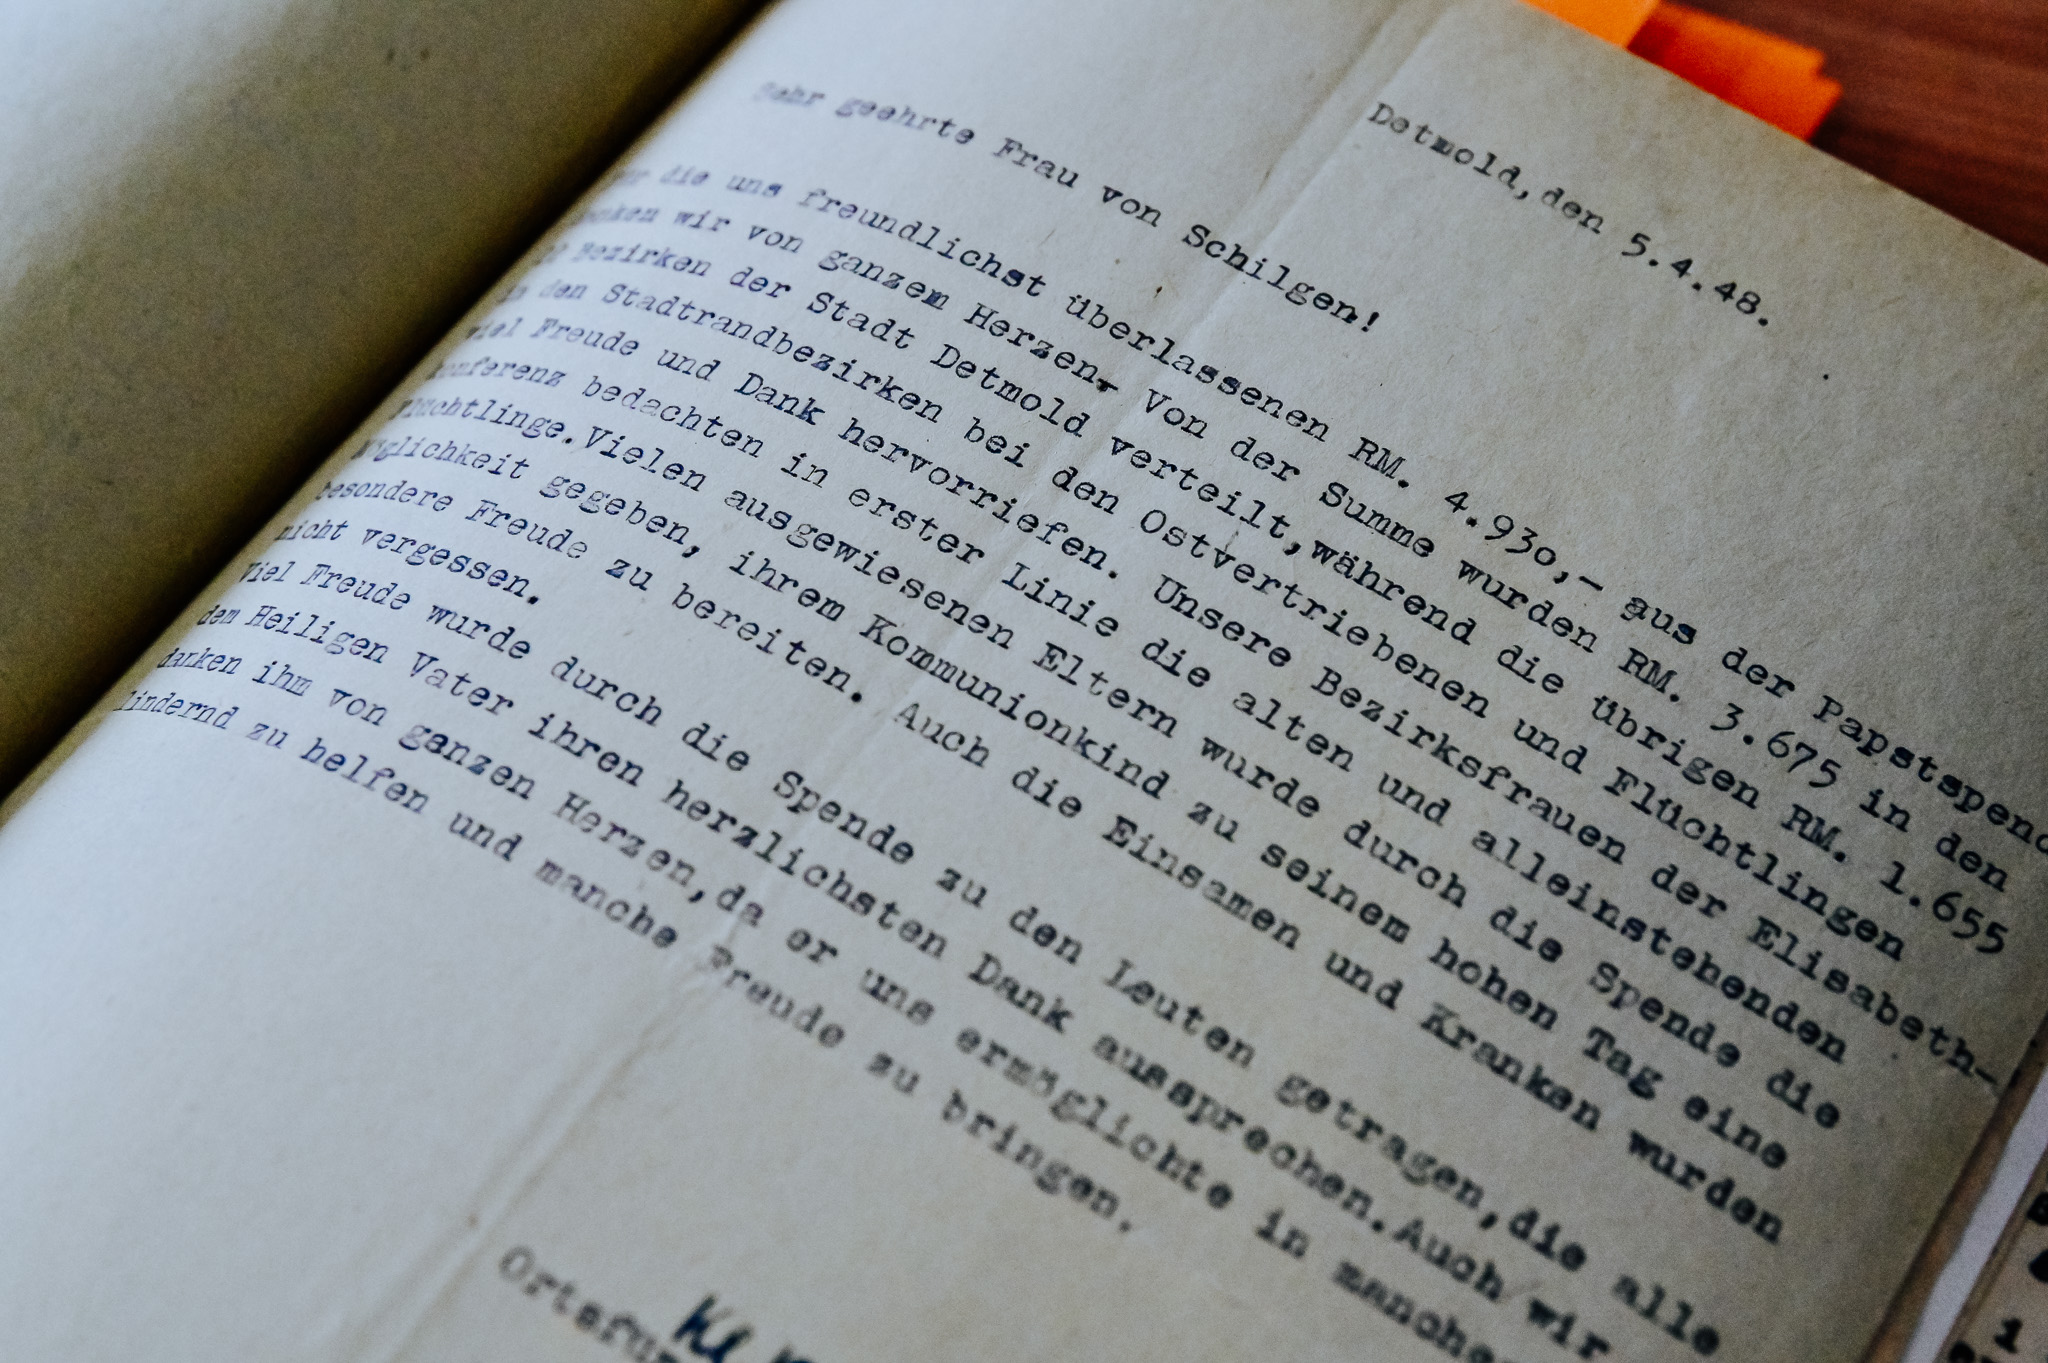 Detmold,den 5.4.48.
Sehr geehrte Frau von Schilgen!
die uns freundlichst überlassenen RM. 4.930,- aus der Papstspend
danken wir von ganzem Herzen. Von der Summe wurden RM. 3.675 in den
Bezirken der Stadt Detmold verteilt,während die übrigen RM. 1.655
in den Stadtrandbezirken bei den Ostvertriebenen und Flüchtlingen
viel Freude und Dank hervorriefen. Unsere Bezirksfrauen der Elisabeth-
konferenz bedachten in erster Linie die alten und alleinstehenden
Flüchtlinge.Vielen ausgewiesenen Eltern wurde durch die Spende die
Möglichkeit gegeben, ihrem Kommunionkind zu seinem hohen Tag eine
besondere Freude zu bereiten. Auch die Einsamen und Kranken wurden
nicht vergessen.
Viel Freude wurde durch die Spende zu den Leuten getragen,die alle
dem Heiligen Vater ihren herzlichsten Dank aussprechen.Auch wir
danken ihm von ganzen Herzen,da er uns ermöglichte in manche
lindernd zu helfen und manche Freude zu bringen.